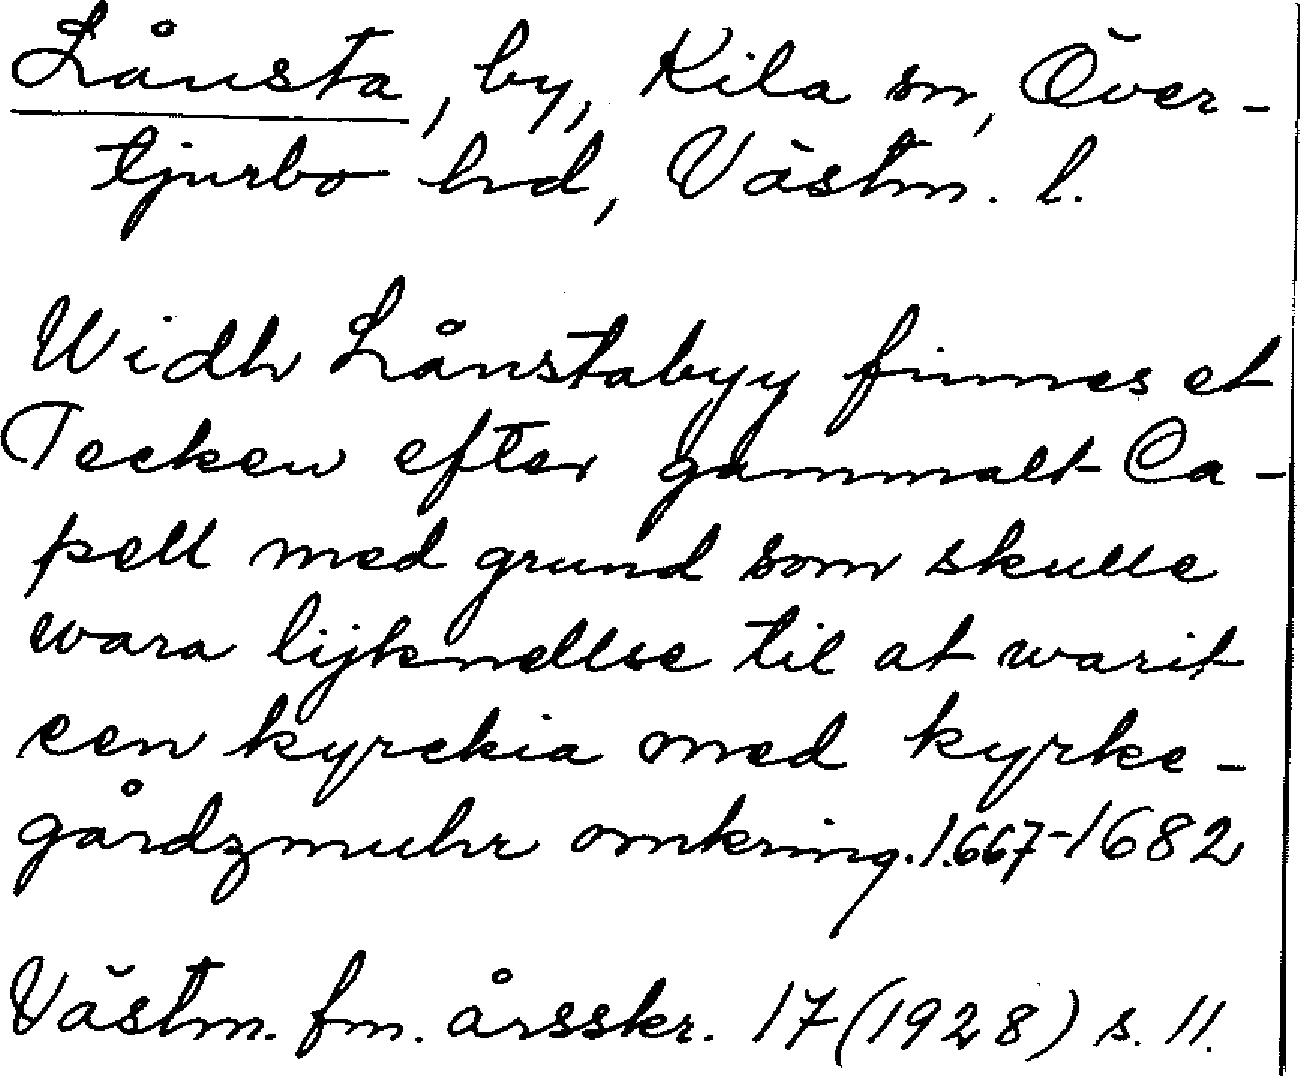 Lånsta, by, Kila sn, Över-
tjurbo hd, Västm. l.
Widh Lånstabyy finnes et
Tecken efter gammalt Ca-
pell med grund som skulle
wara lijknellse til at warit
een kyrckia med kyrke-
gårdzmuhr omkring. 1667-1682
Västm. fm. årsskr. 17 (1928) s. 11.